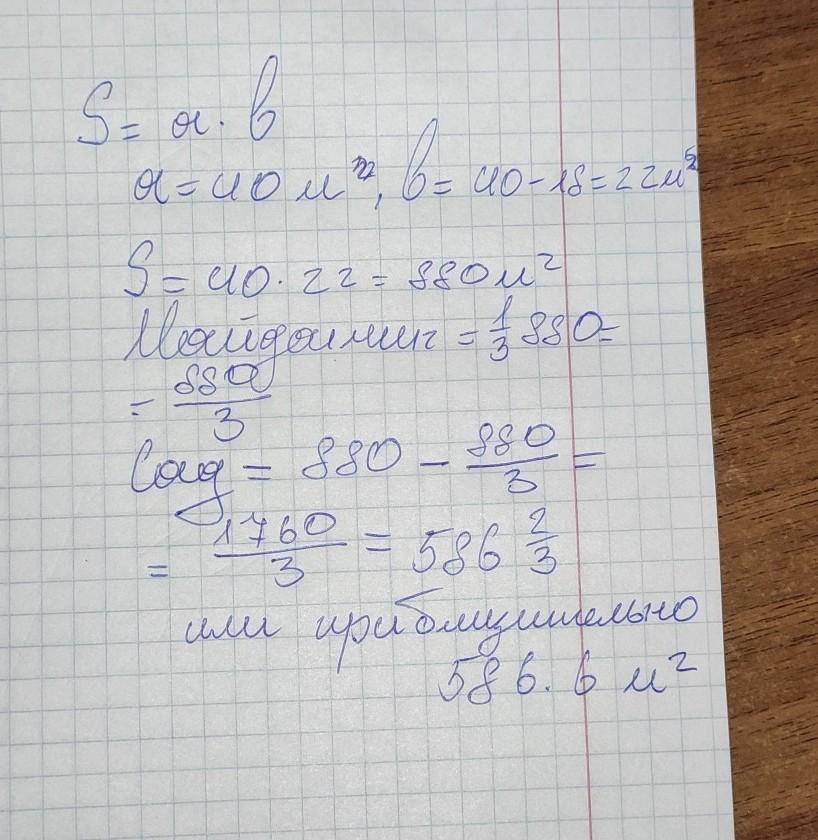 S = a · b
a = 40 м², b = 40 - 18 = 22 м²
S = 40 · 22 = 880 м²
= 1/3 880 =
= 880/3
Сад = 880 - 880/3 =
= 1760/3 = 586 2/3
или приблизительно
586.6 м²